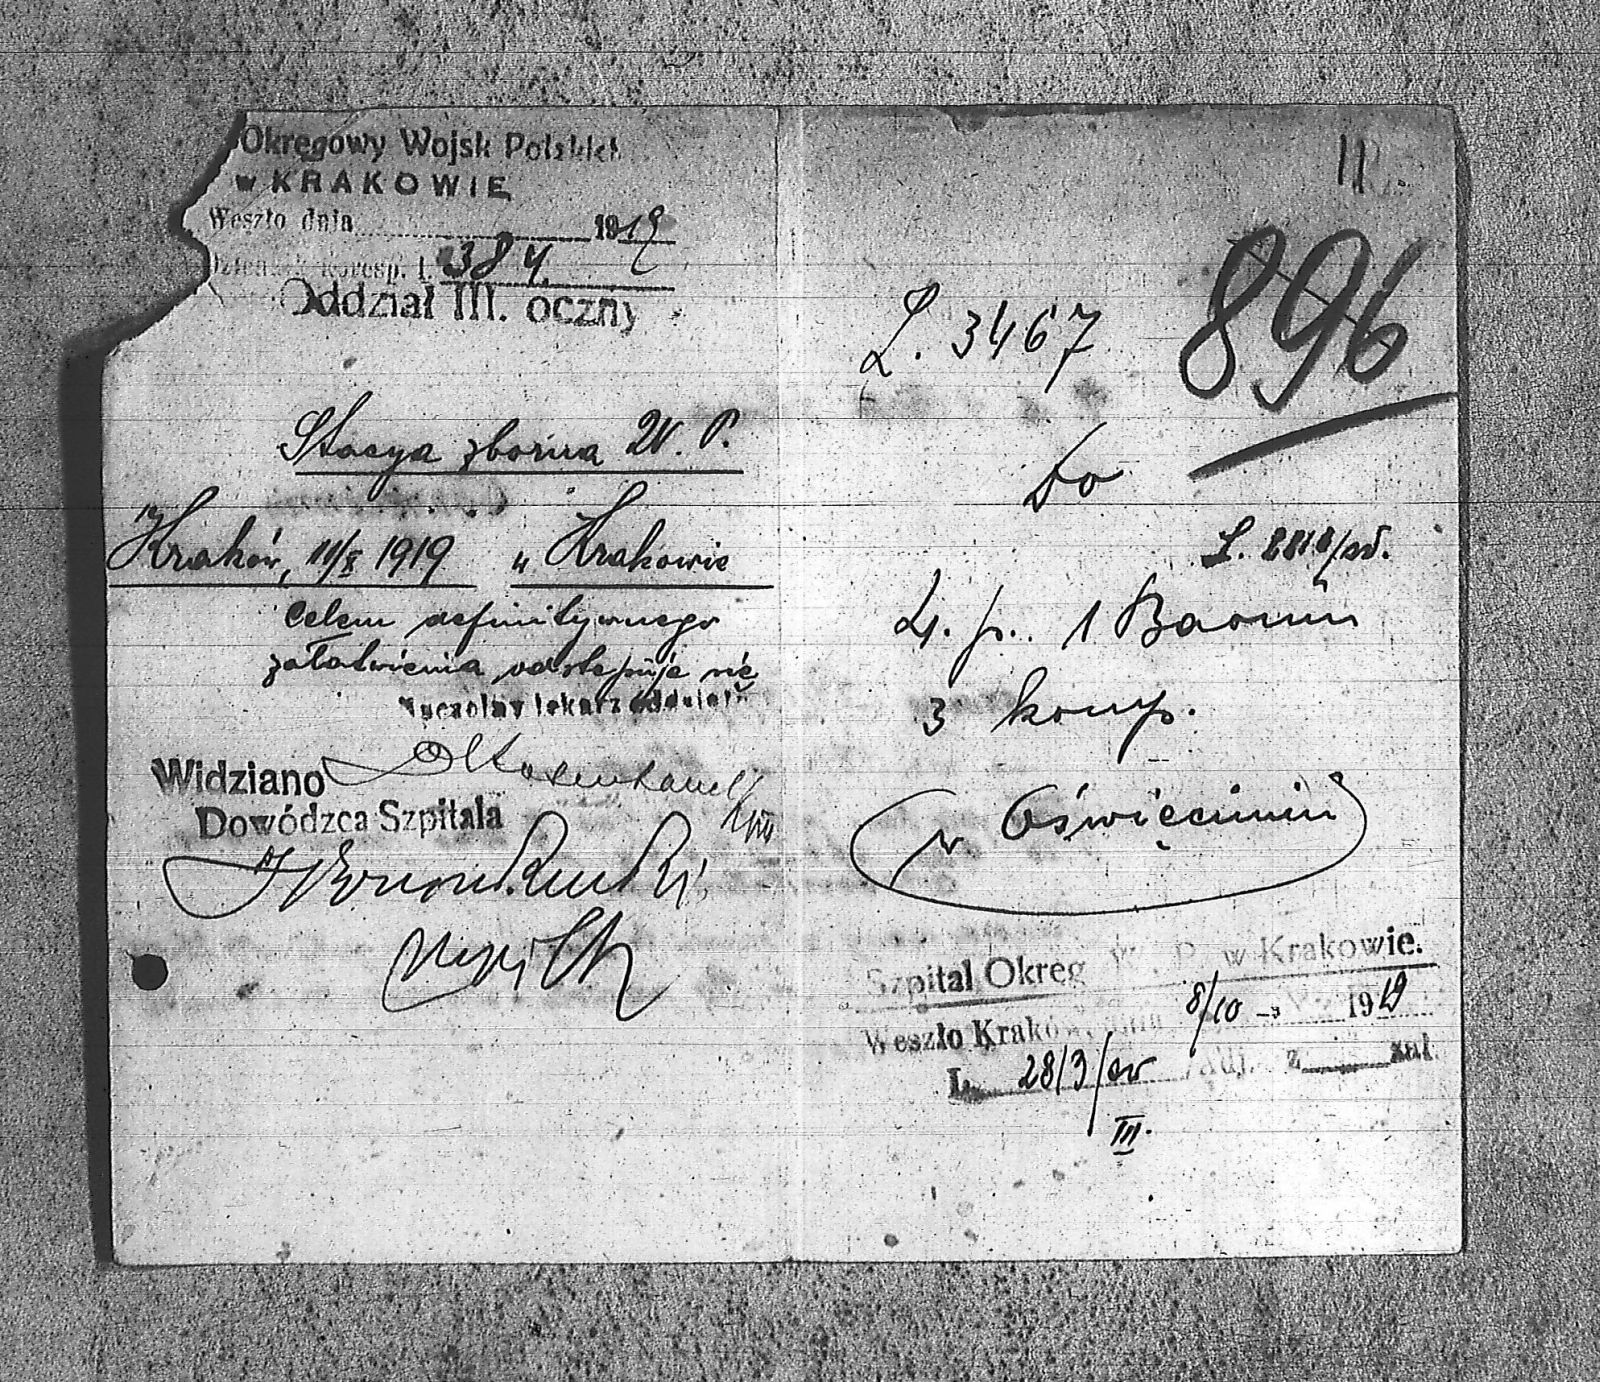 Okręgowy Wojsk Polskich
w KRAKOWIE
Weszło dnia 1919
koresp. l. 384
Oddział III. oczny
Stacya zborna W. P.
Kraków, 11/X 1919 w Krakowie
Celem definitywnego
załatwienia odstępuje się
Naczelny lekarz oddziału
Widziano
Dowódzca Szpitala
896
L. 3467
Do
4. p. 1 Baonu
3 komp.
w Oświęcimiu
Szpital Okręg W. P. w Krakowie.
Weszło Kraków, dnia 8/10 1919
L. 28/3/
III.